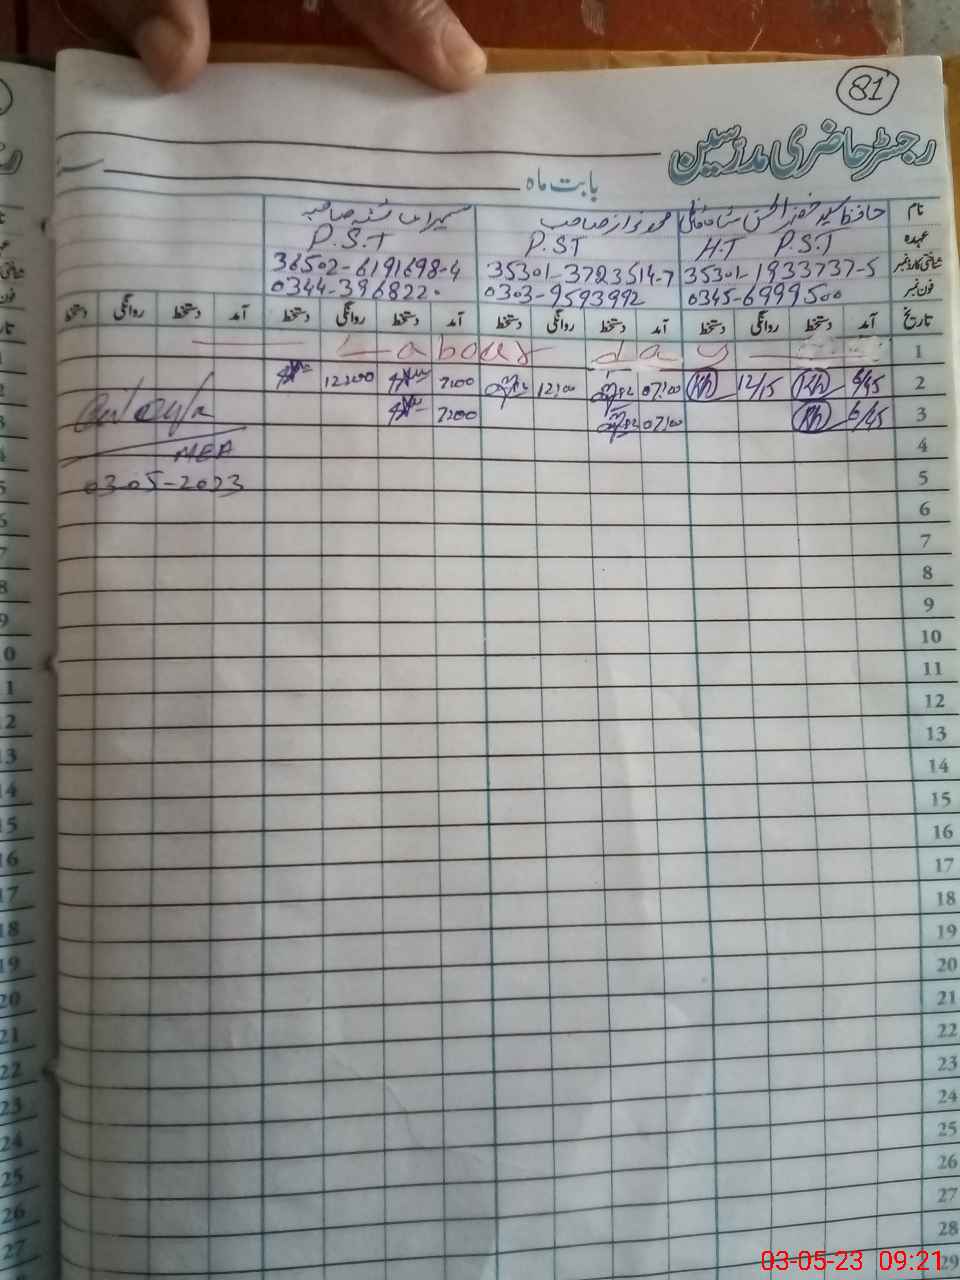 81
رجسٹر حاضری مدرسین
بابت ماہ
نام حافظ سید الحسن محمد نواز صاحب صاحبہ
عہدہ H.T P.S.T P.ST P.S.T
شناختی کارڈ نمبر 35301-1933737-5 35301-3723514-7 36502-6191698-4
فون نمبر 0345-6999500 0303-9593992 0344-3968220
تاریخ آمد دستخط روانگی دستخط آمد دستخط روانگی دستخط آمد دستخط روانگی دستخط آمد دستخط روانگی دستخط
1 Labour day
2 6/45 Kh 12/15 Kh 07:00 12:00 7:00 12:00
3 6/45 Kh 07:00 7:00
4 MEA
5 03-05-2023
6
7
8
9
10
11
12
13
14
15
16
17
18
19
20
21
22
23
24
25
26
27
28
29
03-05-23 09:21